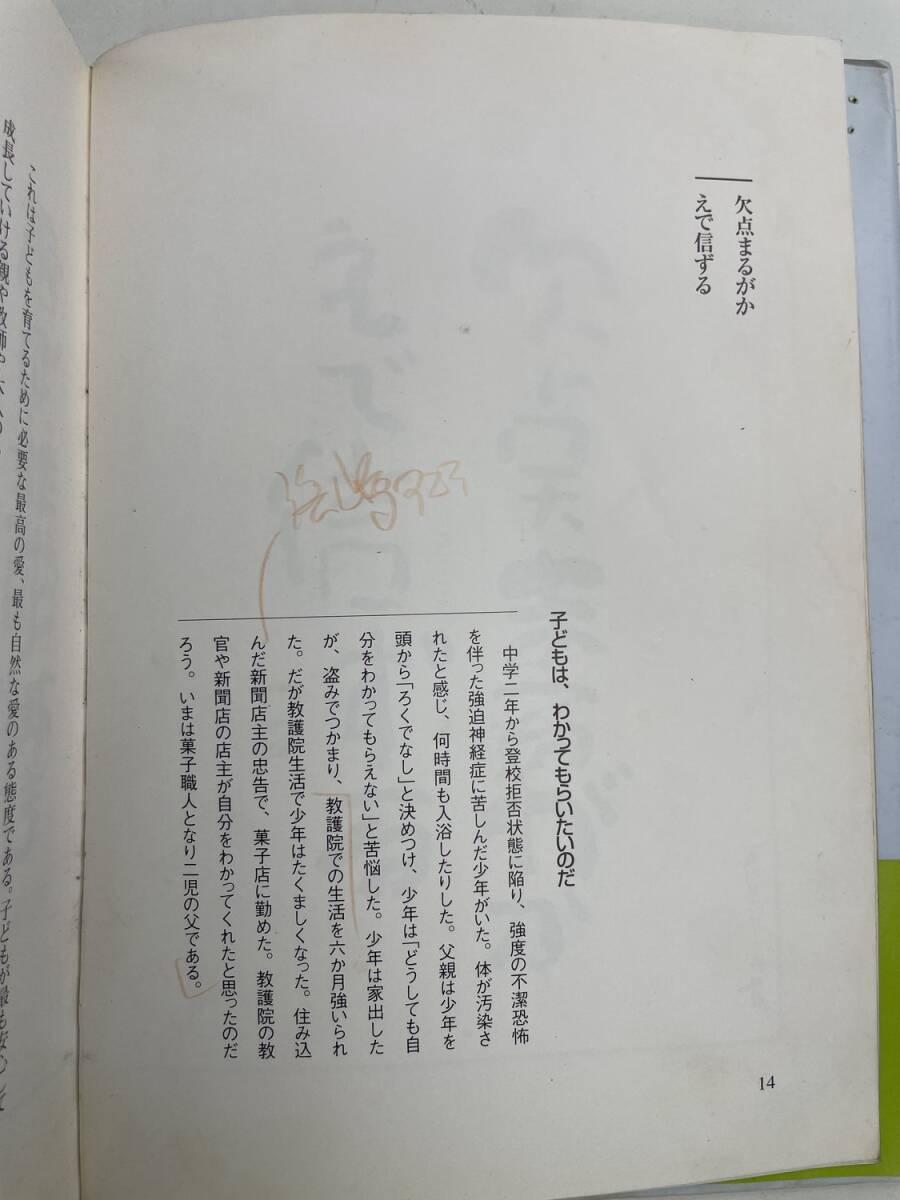 欠点まるがか
えで信ずる
子どもは、わかってもらいたいのだ
中学二年から登校拒否状態に陥り、強度の不潔恐怖
を伴った強迫神経症に苦しんだ少年がいた。体が汚染さ
れたと感じ、何時間も入浴したりした。父親は少年を
頭から「ろくでなし」と決めつけ、少年は「どうしても自
分をわかってもらえない」と苦悩した。少年は家出した
が、盗みでつかまり、教護院での生活を六か月強いられ
た。だが教護院生活で少年はたくましくなった。住み込
んだ新聞店主の忠告で、菓子店に勤めた。教護院の教
官や新聞店の店主が自分をわかってくれたと思ったのだ
ろう。いまは菓子職人となり二児の父である。
14
これは子どもを育てるために必要な最高の愛、最も自然な愛のある態度である。子どもが最も安心して
成長していける親や教師や大人の